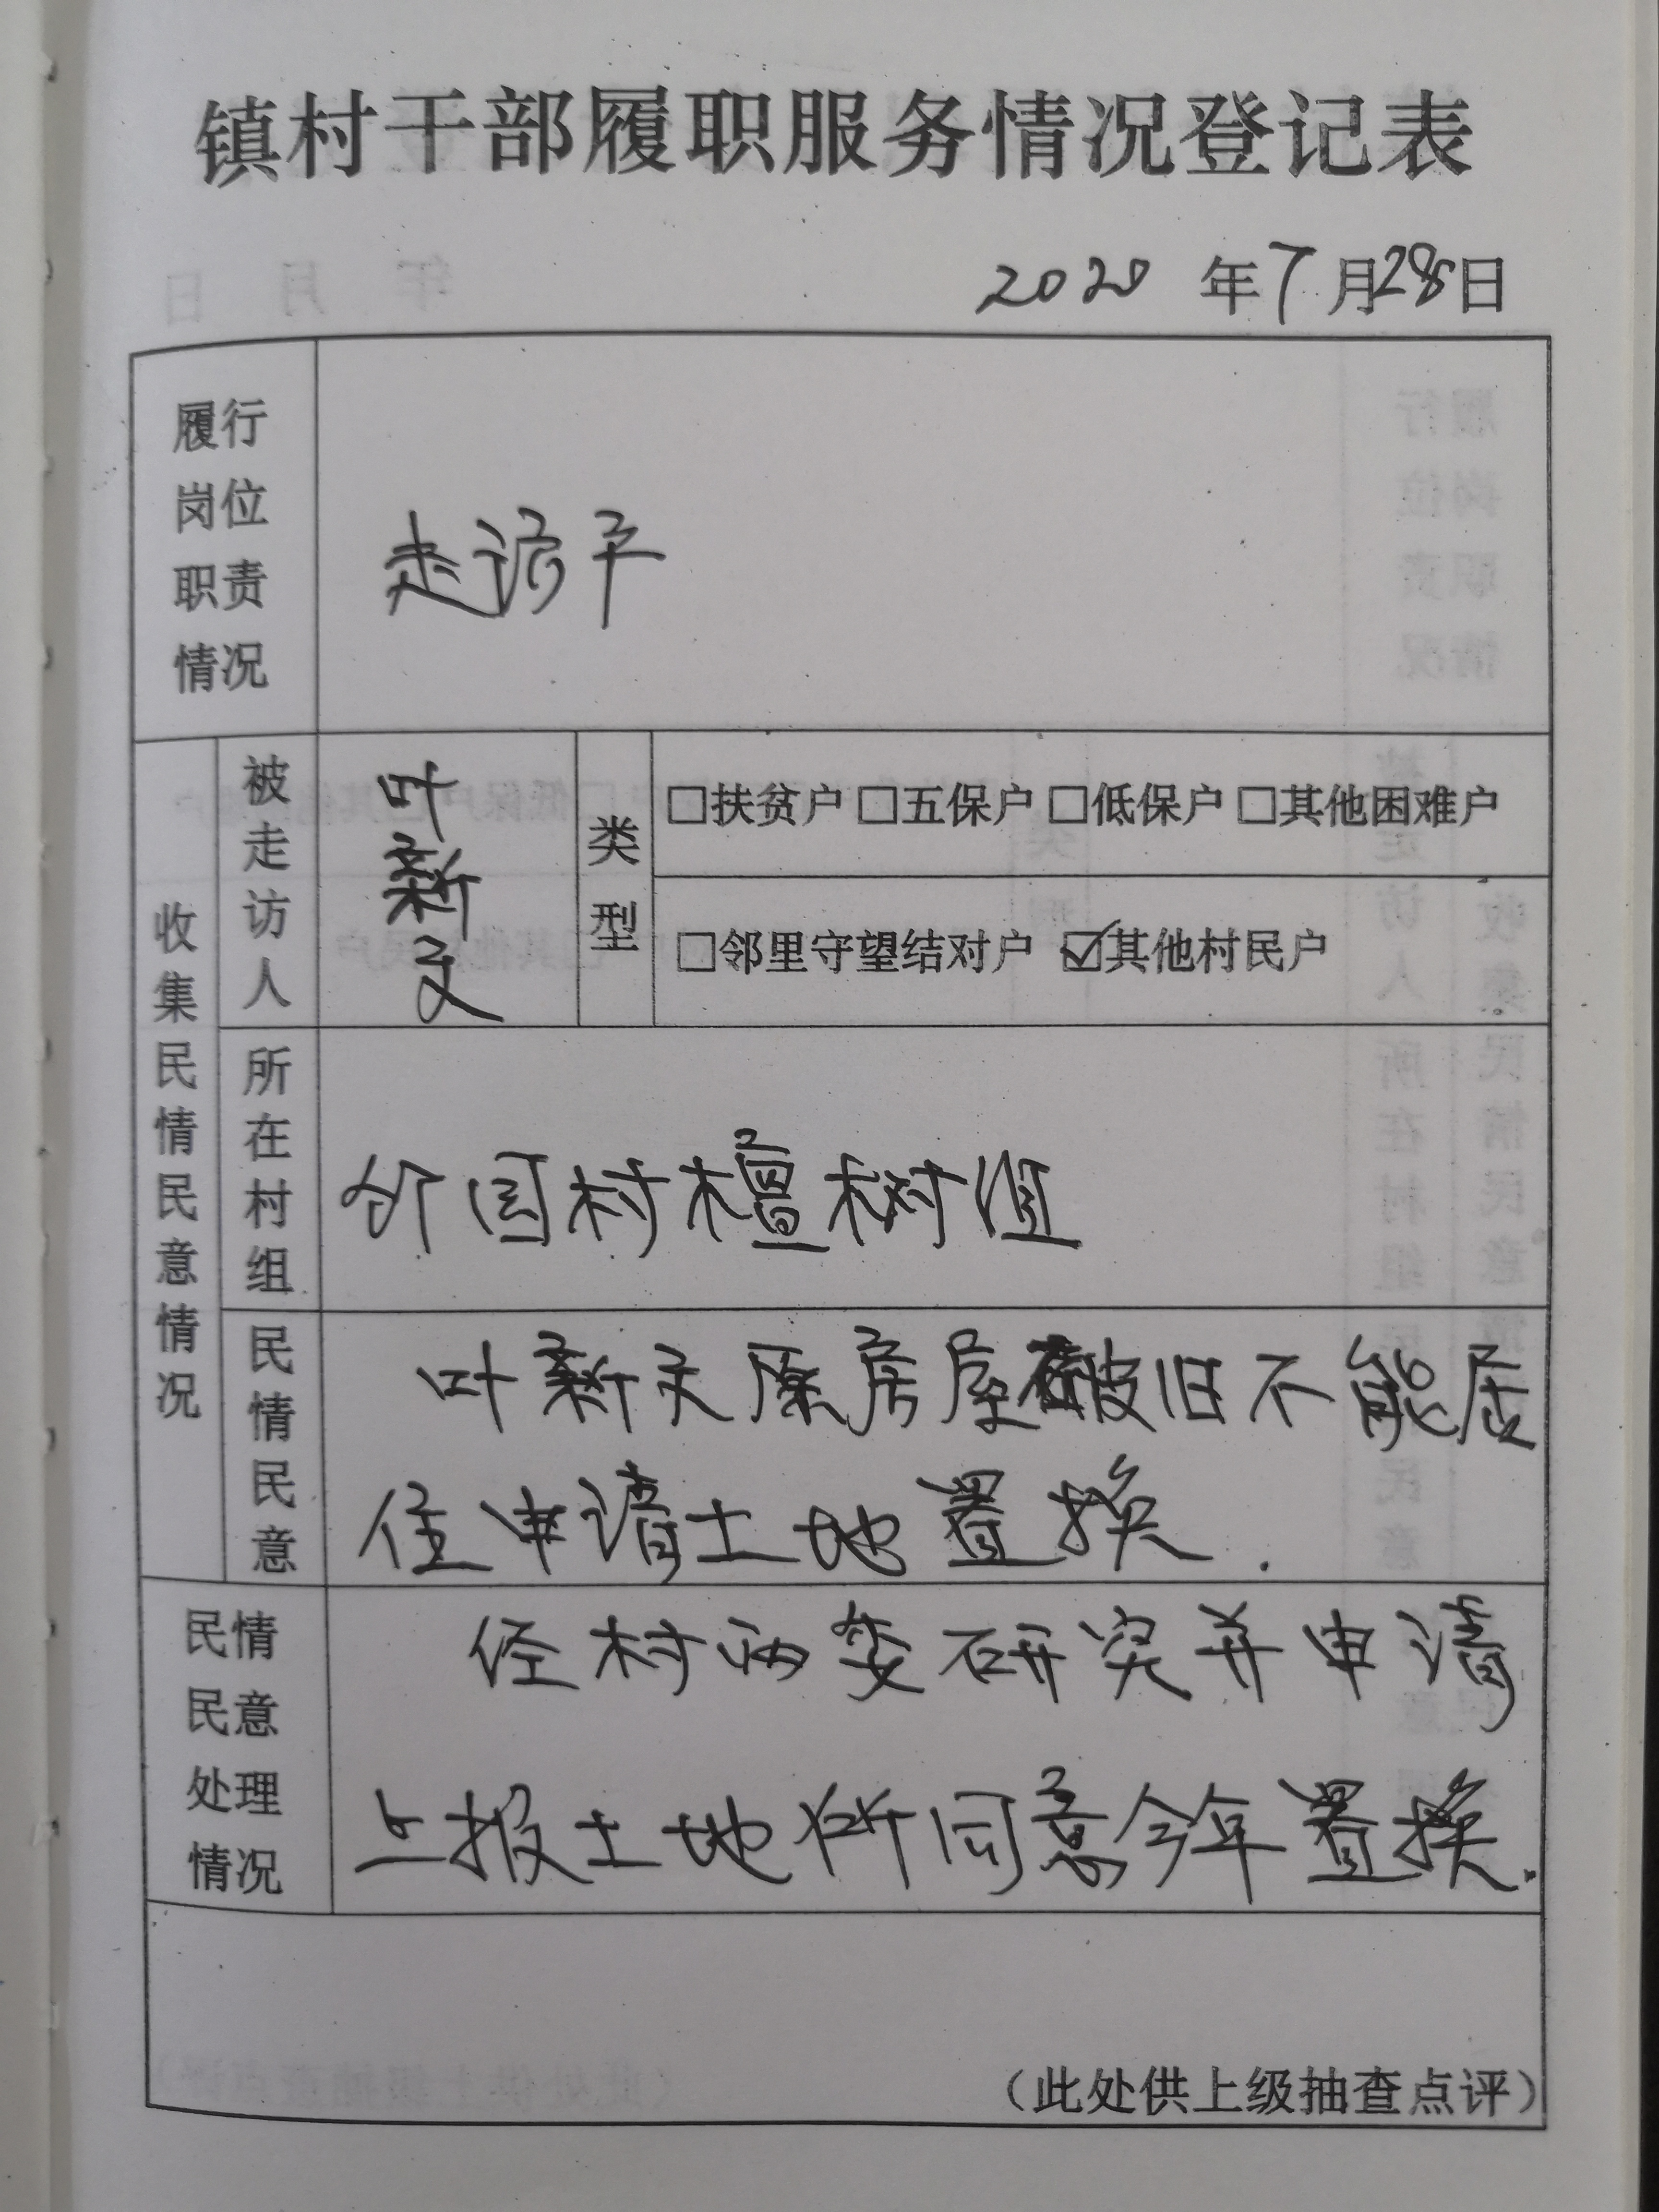 镇村干部履职服务情况登记表
2020年7月28日
履行
岗位
职责
情况
走访户
收集民情民意情况
被走访人
叶新文
类型
□扶贫户 □五保户 □低保户 □其他困难户
□邻里守望结对户 ☑其他村民户
所在村组
村檀树组
民情民意
叶新文原房屋破旧不能居
住申请土地置换.
民情
民意
处理
情况
经村两委研究并申请
上报土地所同意今年置换.
（此处供上级抽查点评）